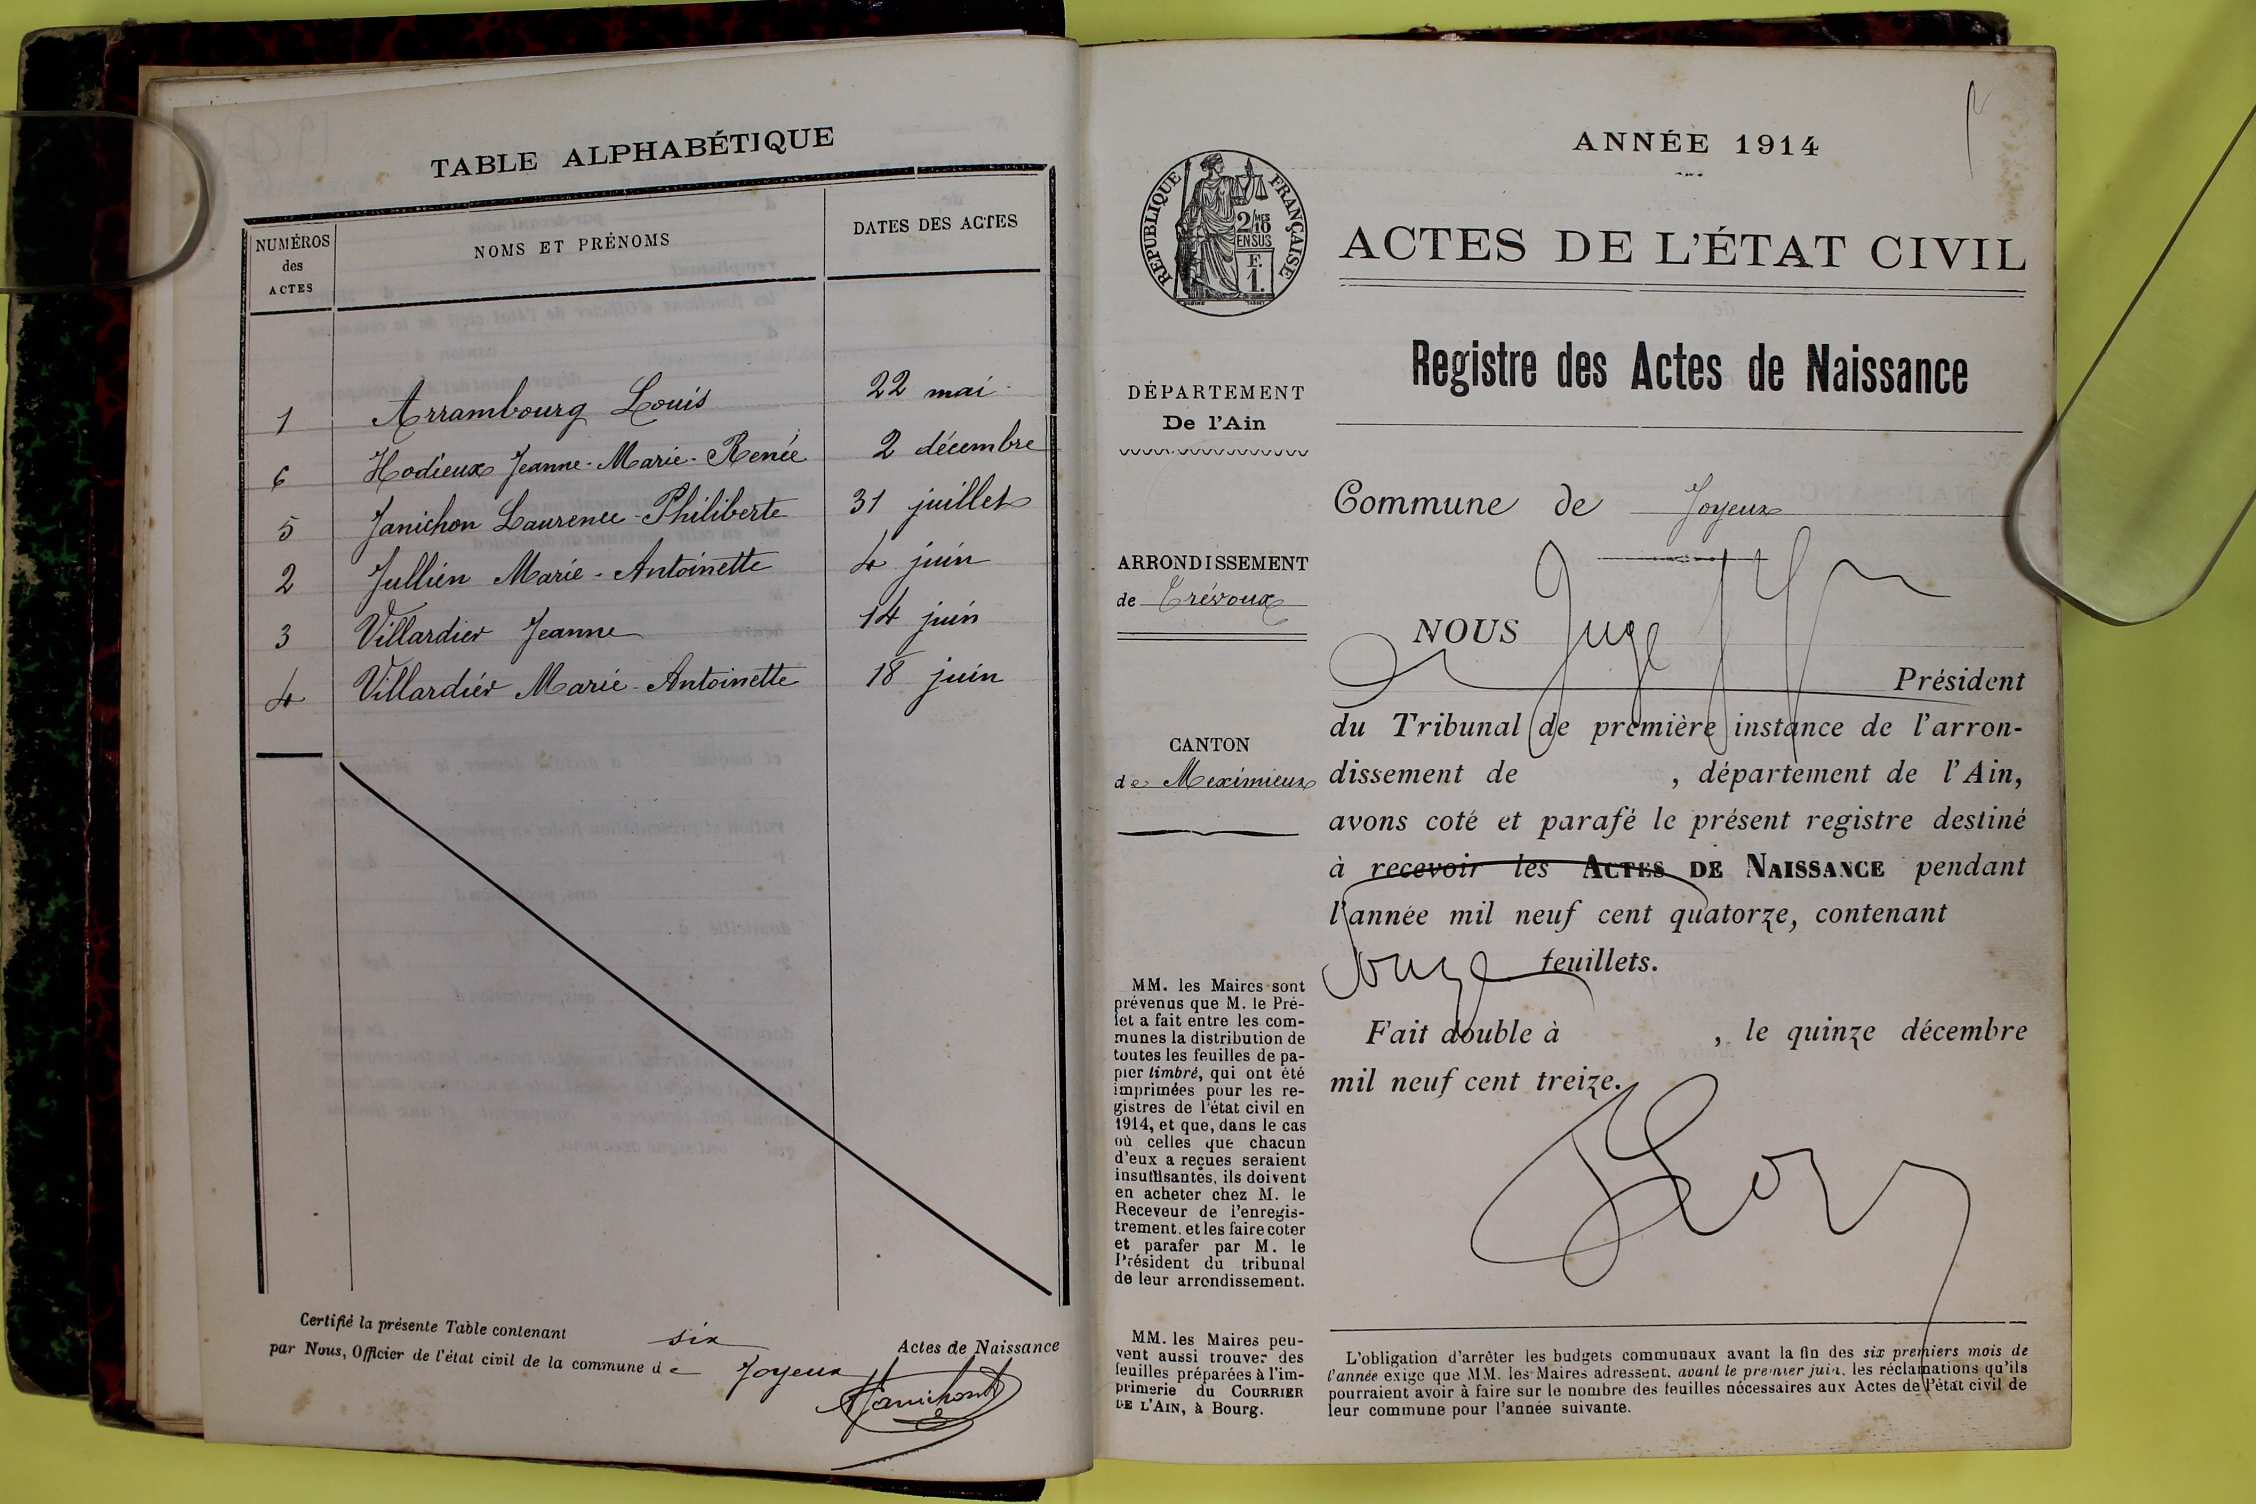 TABLE ALPHABÉTIQUE
NUMÉROS
des
ACTES
NOMS ET PRÉNOMS
DATES DES ACTES
1 Arrambourg Louis 22 mai
6 Hodieux Jeanne-Marie-Renée 2 décembre
5 Janichon Laurence-Philiberte 31 juillet
2 Jullien Marie-Antoinette 4 juin
3 Villardier Jeanne 14 juin
4 Villardier Marie-Antoinette 18 juin
Certifié la présente Table contenant six Actes de Naissance
par Nous, Officier de l'état civil de la commune de Joyeux
Janichon
ANNÉE 1914
RÉPUBLIQUE FRANÇAISE
2/10 MES
EN SUS
F.
1.
ACTES DE L'ÉTAT CIVIL
Registre des Actes de Naissance
DÉPARTEMENT
De l'Ain
ARRONDISSEMENT
de Trévoux
CANTON
de Meximieux
MM. les Maires sont
prévenus que M. le Pré-
fet a fait entre les com-
munes la distribution de
toutes les feuilles de pa-
pier timbré, qui ont été
imprimées pour les re-
gistres de l'état civil en
1914, et que, dans le cas
où celles que chacun
d'eux a reçues seraient
insuffisantes, ils doivent
en acheter chez M. le
Receveur de l'enregis-
trement, et les faire coter
et parafer par M. le
Président du tribunal
de leur arrondissement.
MM. les Maires peu-
vent aussi trouver des
feuilles préparées à l'im-
primerie du COURRIER
DE L'AIN, à Bourg.
Commune de Joyeux
NOUS Juge
Président
du Tribunal de première instance de l'arron-
dissement de , département de l'Ain,
avons coté et parafé le présent registre destiné
à recevoir les ACTES DE NAISSANCE pendant
l'année mil neuf cent quatorze, contenant
feuillets.
Fait double à , le quinze décembre
mil neuf cent treize.
L'obligation d'arrêter les budgets communaux avant la fin des six premiers mois de
l'année exige que MM. les Maires adressent, avant le premier juin, les réclamations qu'ils
pourraient avoir à faire sur le nombre des feuilles nécessaires aux Actes de l'état civil de
leur commune pour l'année suivante.